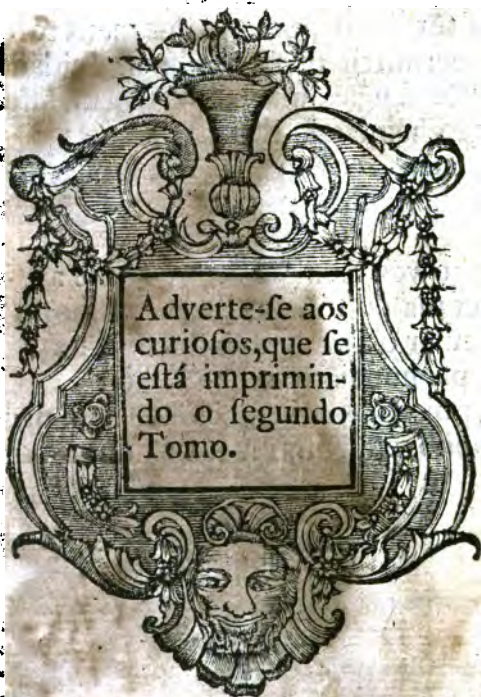 Adverte-ſe aos
curioſos,que ſe
eſtá imprimin-
do o ſegundo
Tomo.